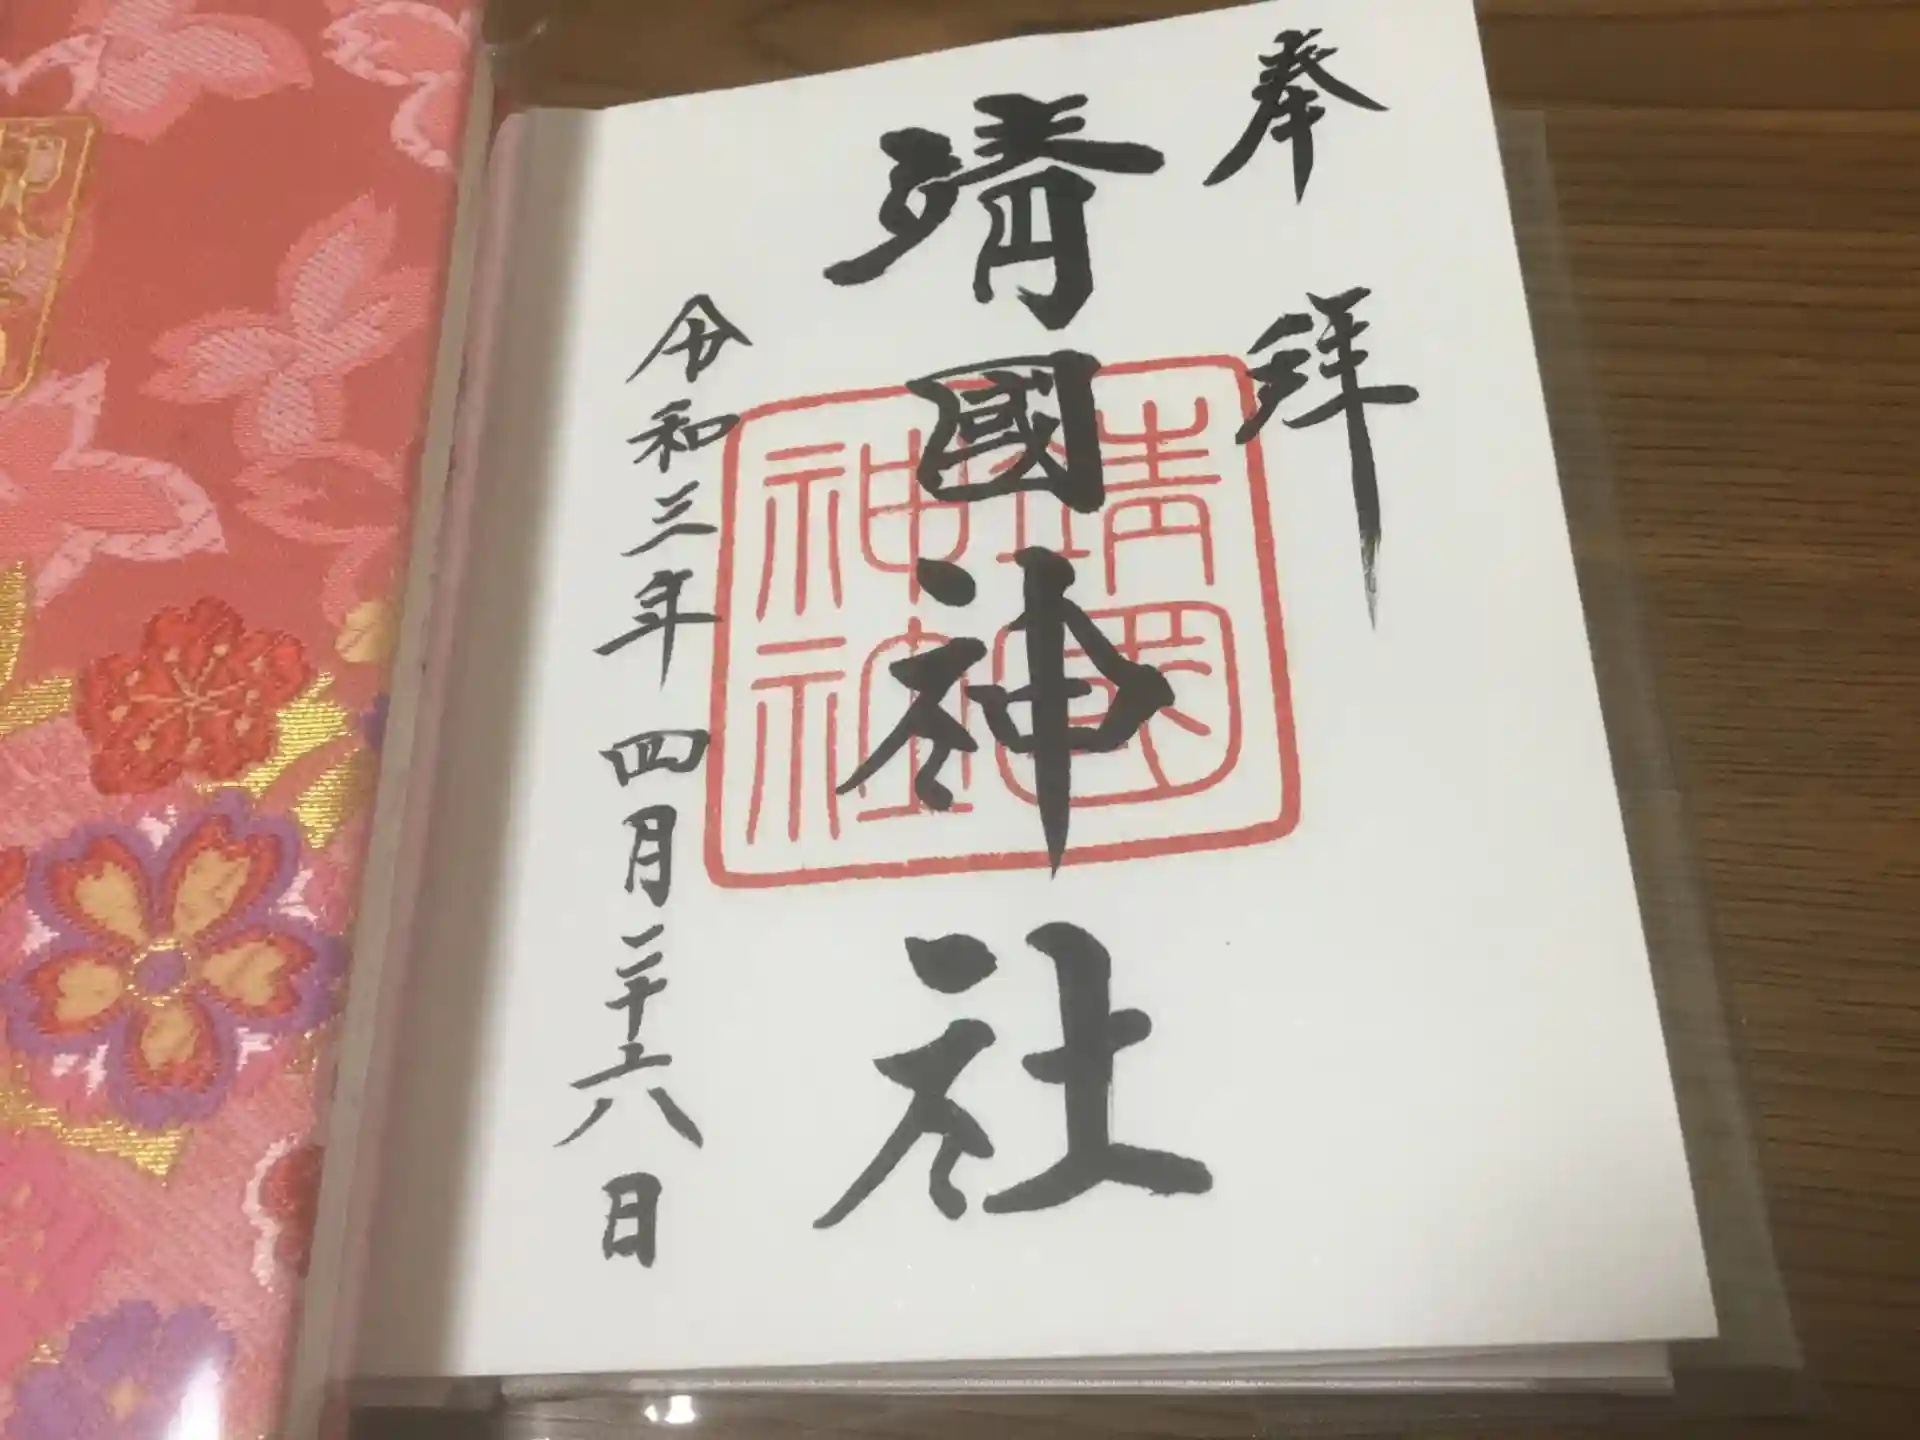 奉拝
靖國神社
靖國
神社
令和三年四月二十六日